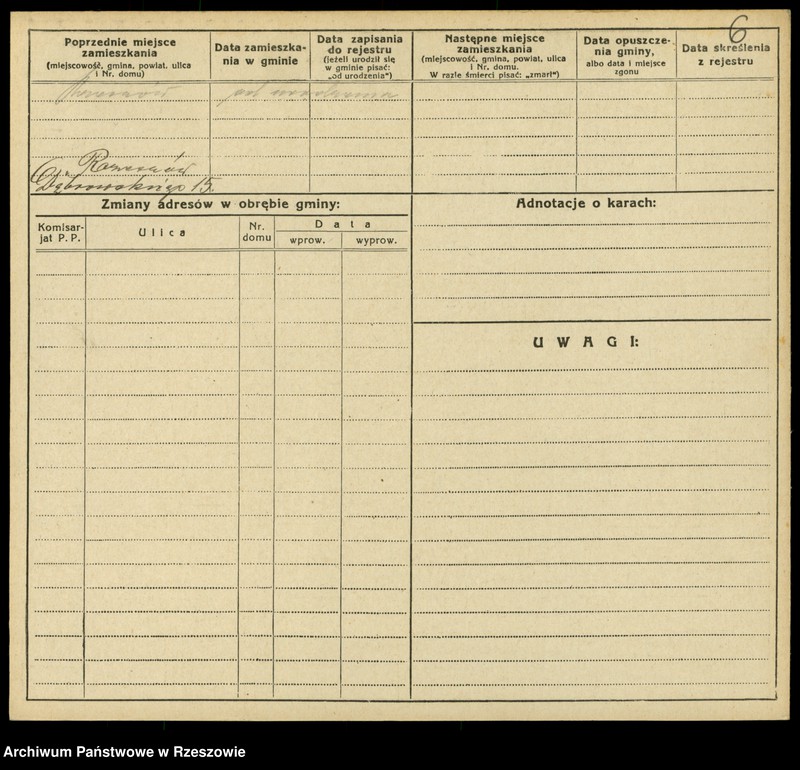 6
Poprzednie miejsce
zamieszkania
(miejscowość, gmina, powiat, ulica
i Nr. domu)
Data zamieszka-
nia w gminie
Data zapisania
do rejestru
(jeżeli urodził się
w gminie pisać:
„od urodzenia")
Następne miejsce
zamieszkania
(miejscowość, gmina, powiat, ulica
i Nr. domu.
W razie śmierci pisać: „zmarł")
Data opuszcze-
nia gminy,
albo data i miejsce
zgonu
Data skreślenia
z rejestru
Rzeszów od urodzenia
Rzeszów
Dąbrowskiego 15
Zmiany adresów w obrębie gminy:
Komisar-
jat P. P.
Ulica
Nr.
domu
Data
wprow.
wyprow.
Adnotacje o karach:
UWAGI:
Archiwum Państwowe w Rzeszowie